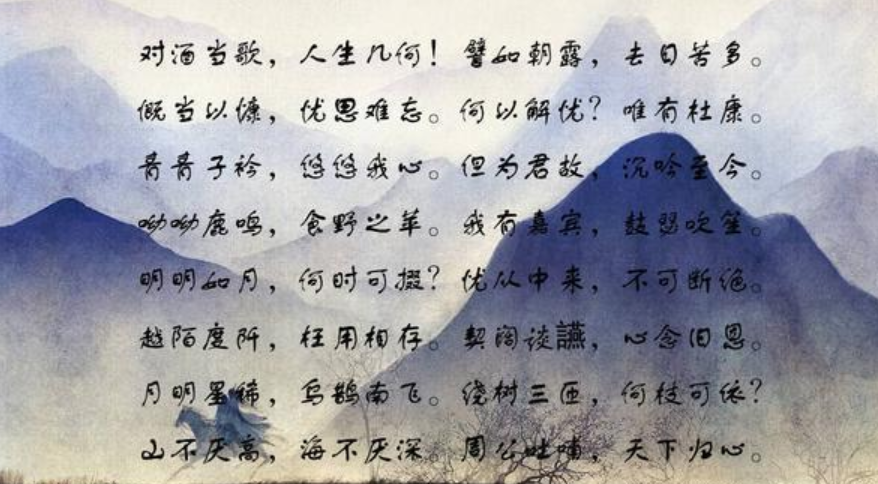 对酒当歌，人生几何！譬如朝露，去日苦多。
慨当以慷，忧思难忘。何以解忧？唯有杜康。
青青子衿，悠悠我心。但为君故，沉吟至今。
呦呦鹿鸣，食野之苹。我有嘉宾，鼓瑟吹笙。
明明如月，何时可掇？忧从中来，不可断绝。
越陌度阡，枉用相存。契阔谈讌，心念旧恩。
月明星稀，乌鹊南飞。绕树三匝，何枝可依？
山不厌高，海不厌深。周公吐哺，天下归心。